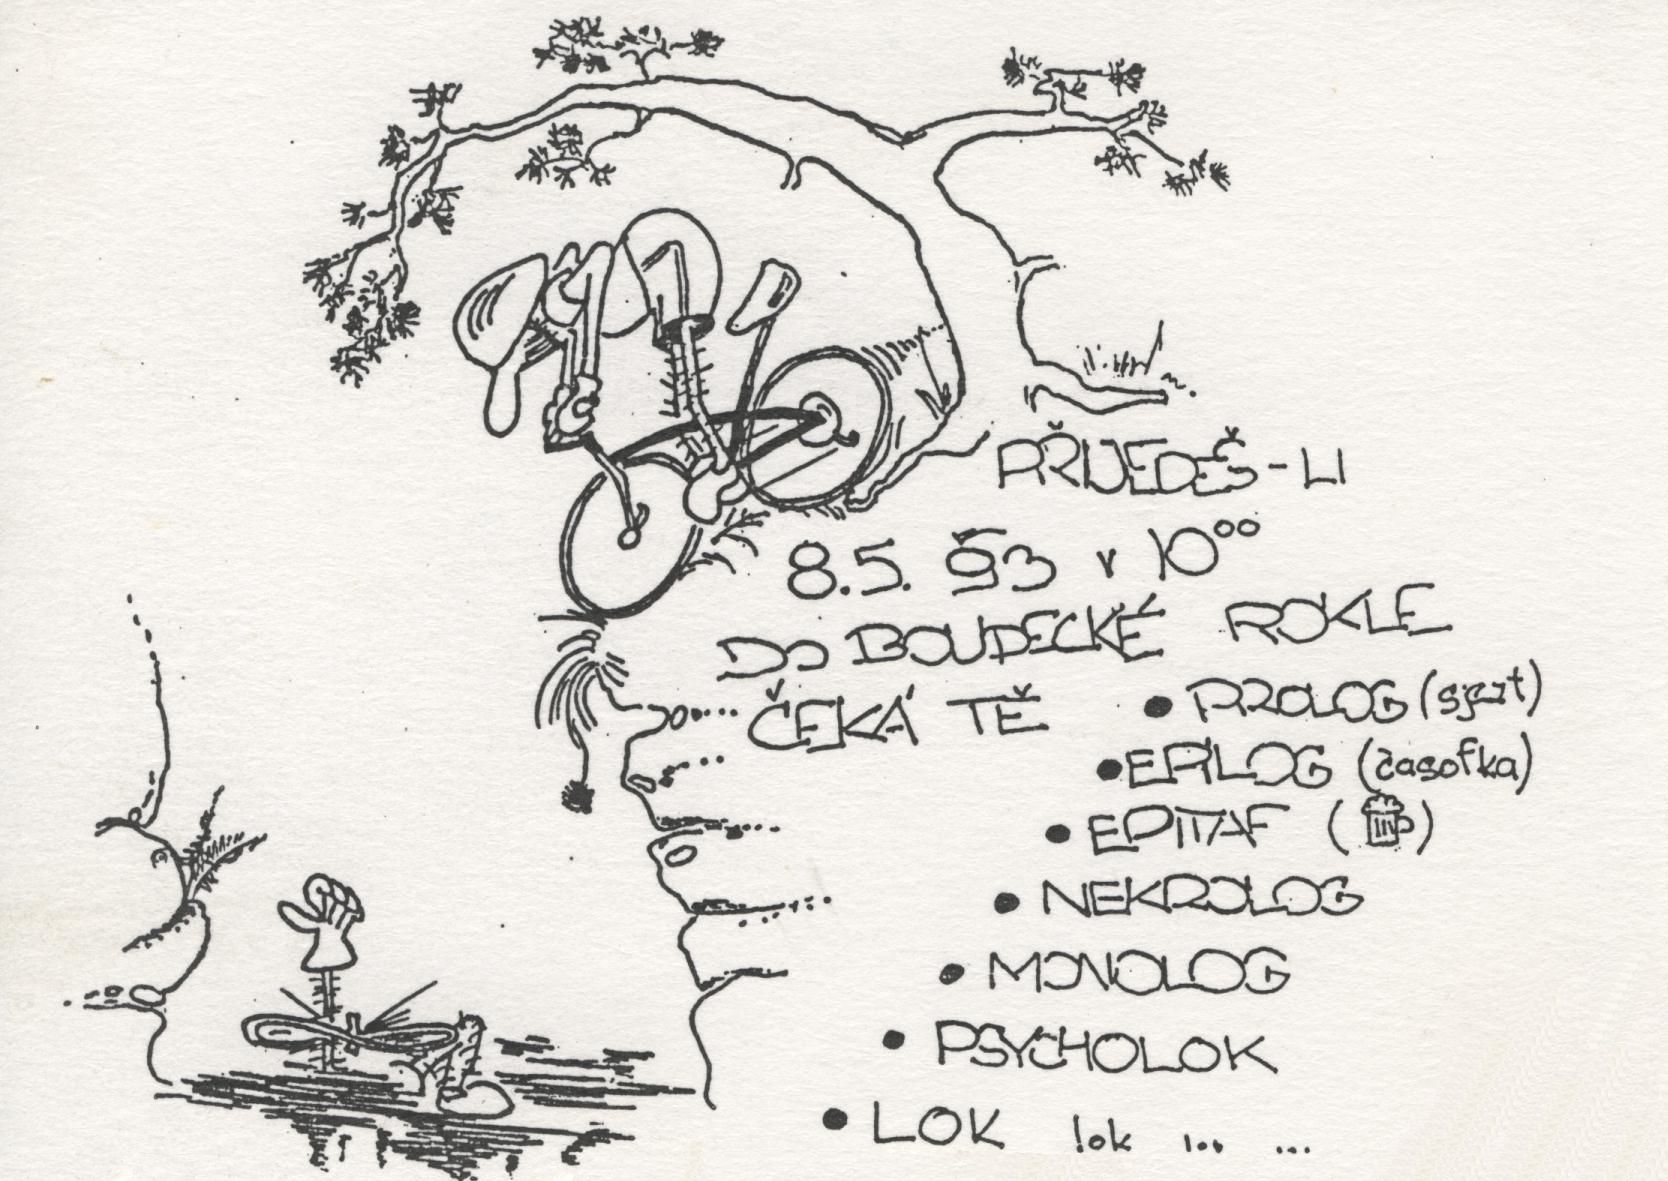 PŘIJEDEŠ-LI
8.5. 93 v 10⁰⁰
DO BOUDECKÉ ROKLE
ČEKÁ TĚ • PROLOG (sjezt)
• EPILOG (časofka)
• EPITAF ( )
• NEKROLOG
• MONOLOG
• PSYCHOLOK
• LOK lok l.. ...